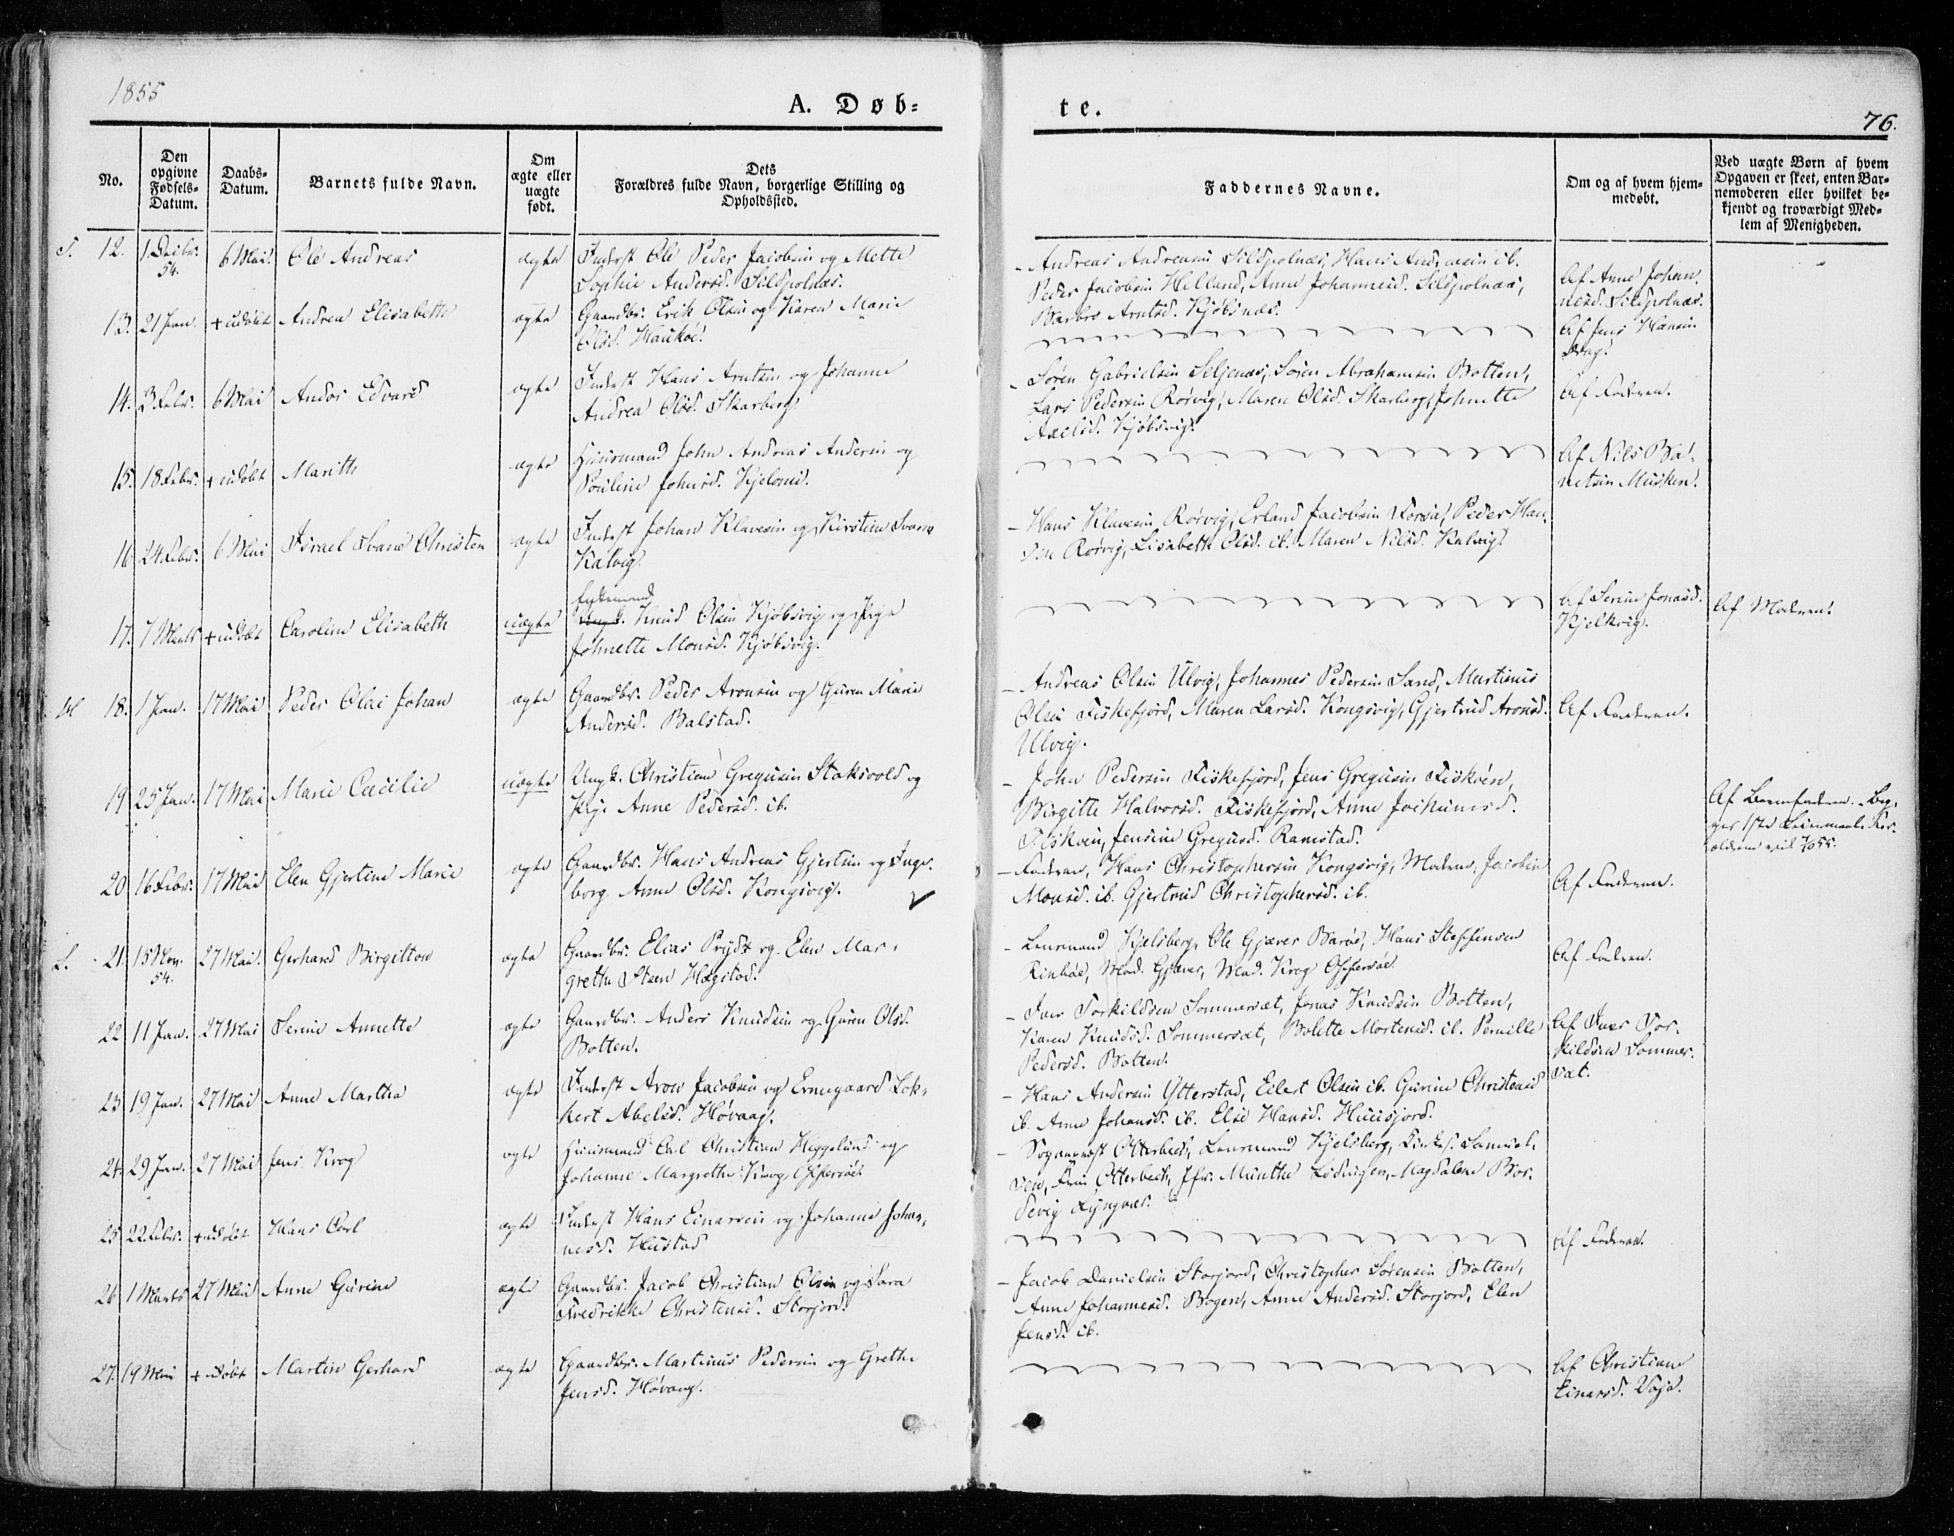 1855
A. Døb-
te.
76.
No.
Den
opgivne
Fødsels-
Datum.
Daabs-
Datum.
Barnets fulde Navn.
Om
ægte eller
uægte
født.
Dets
Forældres fulde Navn, borgerlige Stilling og
Opholdssted.
Faddernes Navne.
Om og af hvem hjem-
medøbt.
Ved uægte Børn af hvem
Opgaven er skeet, enten Bar-
nemoderen eller hvilket be-
kjendt og troværdigt Med-
lem af Menigheden.
12. 54. 6 Mai. Ole Andreas ægte Inderst Ole Peder Jacobsen og Mette
Sophie Andersd. Sildpolnæs.
- Andreas Andreasen Sildpolnæs, Hans Andreasen ib.
Peder Jacobsen Helland, Anne Johannesd. Sildpolnæs,
Barbro Arntsd. Kjøbsnæs.
Af Anne Johan-
nesd. Sildpolnæs.
13. 21 Jan. + udøbt Andrea Elisabeth ægte Gaardbr. Erik Olsen og Karen Marie
Olsd. Haukøe.
Af Jens Hansen
14. 3 Febr. 6 Mai Andor Edvard ægte Inderst Hans Arntsen og Johanne
Andrea Olsd. Skarberg.
- Søren Gabrielsen Seljenæs, Søren Abrahamsen Botten,
Lars Pedersen Rørvig, Maren Olsd. Skarberg, Johnette
Axelsd. Kjøbsvig.
Af Faderen.
15. 18 Febr. + udøbt Marith ægte Huusmand John Andreas Andersen og
Pouline Johnsd.
Af Nils
Musken.
16. 24 Febr. 6 Mai Israel Svane Christen ægte Inderst Johan Klavesen og Kirstine
Kalvig.
- Hans Klavesen Rørvig, Erland Jacobsen Forsaa, Peder Han-
sen Rørvig, Lisabeth Olsd. ib. Maren Nilsd. Kalvig.
17. 7 Marts + udøbt Caroline Elisabeth uægte Knud Olsen Kjøbsvig og Pige
Johnette Monsd. Kjøbsvig.
Af Serine Jonasd.
Kjelkvig.
Af Moderen.
18. 1 Jan. 17 Mai Peder Olai Johan ægte Gaardbr. Peder Aronsen og Guren Marie
Andersd. Balstad.
- Andreas Olsen Ulvig, Johannes Pedersen Sand, Martinus
Olsen Fiskefjord, Maren Larsd. Kongsvig, Gjertrud Aronsd.
Ulvig.
Af Faderen.
19 25 Jan. 17 Mai Marie Cecilie uægte Ungk. Christian Gregusen Stoksvold og
Pige Anne Pedersd. ib.
- John Pedersen Fiskefjord, Jens Gregusen Fiskøen,
Birgitte Halvorsd. Fiskefjord, Anne Jochumsd.
Fiskøen, Jensine Gregusd. Ramstad.
Af Barnefaderen. Beg-
ges 1ste Leiermaal.
20 16 Febr. 17 Mai Elen Gjertine Marie ægte Gaardbr. Hans Andreas Gjertsen og Inge-
borg Anne Olsd. Kongsvig.
- Faderen, Hans Christophersen Kongsvig, Moderen, Jacobine
Monsd. ib. Gjertrud Christophersd. ib.
Af Faderen.
L. 21. 15 Nov. 54. 27 Mai. Gerhard Birgitton ægte Gaardbr. Elias Prydz og Elen Mar-
grethe Steen Hægstad.
- Lensmand Kjelsberg, Ole Gjæver Barøe, Hans Steffensen
Rinbøe, Mad. Gjæver, Mad. Krog Offersøe.
Af Faderen.
22 11 Jan. 27 Mai Serine Annette ægte Gaardbr. Anders Knudsen og Guren Olsd.
Botten.
- Iver Torkildsen Sommersæt, Jonas Knudsen Botten,
Karen Knudsd. Sommersæt, Bolette Mortensd. ib. Pernille
Pedersd. Botten.
Af Iver Tor-
kildsen Sommer-
sæt.
23 19 Jan. 27 Mai Anne Martha ægte Inderst Aron Jacobsen og Ermegaard Lok-
kert Abelsd. Høvaag.
- Hans Andersen Ytterstad, Eilert Olsen ib. Gurine Christensd
ib. Anne Johansd. ib. Else Hansd. Huusjord.
24. 29 Jan. 27 Mai Jens Krog ægte Huusmand Carl Christian Heggelund og
Johanne Margrethe Krog Offersøe.
- Sogneprest Otterbech, Lensmand Kjelsberg, Samuel-
sen, Frue Otterbech, Jfr. Munthe Lødingen, Magdalene
25 22 Febr. + udøbt Hans Carl ægte Inderst Hans Einarsen og Johanne Johan-
nesd. Hustad
Af Faderen.
26 1 Marts 27 Mai Anne Gurine ægte Gaardbr. Jacob Christian Olsen og Sara
Fredrikke Christensd. Storjord.
- Jacob Danielsen Storjord, Christopher Sørensen Botten,
Anne Johannesd. Bogen, Anne Andersd. Storjord, Elen
Jensd. ib.
27. 19 Mai + udøbt Martin Gerhard ægte Gaardbr. Martinus Pedersen og Grethe
Jensd. Høvaag.
Af Christiane
Einarsd. Voje.